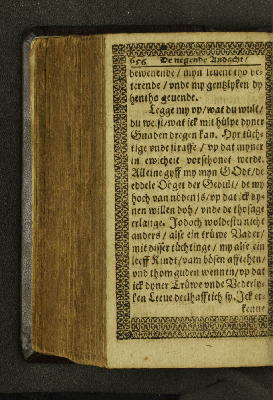 656 De negende Andacht/
bewenende / myn levent tho be-
terende / vnde my gentzlyken dy
hentho gevende.
Legge my vp / wat du wult /
du weist / wat ick mit hülpe dyner
Gnaden dregen kan. Hyr tüch-
tige vnde straffe / vp dat myner
in ewicheit vorschonet werde.
Alleine gyff my myn GOdt / de
eddele Döget der Gedült / de my
hoch van nöden is / vp dat ick dy-
nen willen doh / vnde de thosage
erlange. Jodoch woldestu nicht
anders / alse ein trüwe Vader /
mit disser tüchtinge / my alse ein
leeff Kindt / vam bösen afftehen /
vnd thom guden wennen / vp dat
ick dyner Trüwe vnde Vederly-
ken Leeve deelhafftich sy. Ick er-
kenne